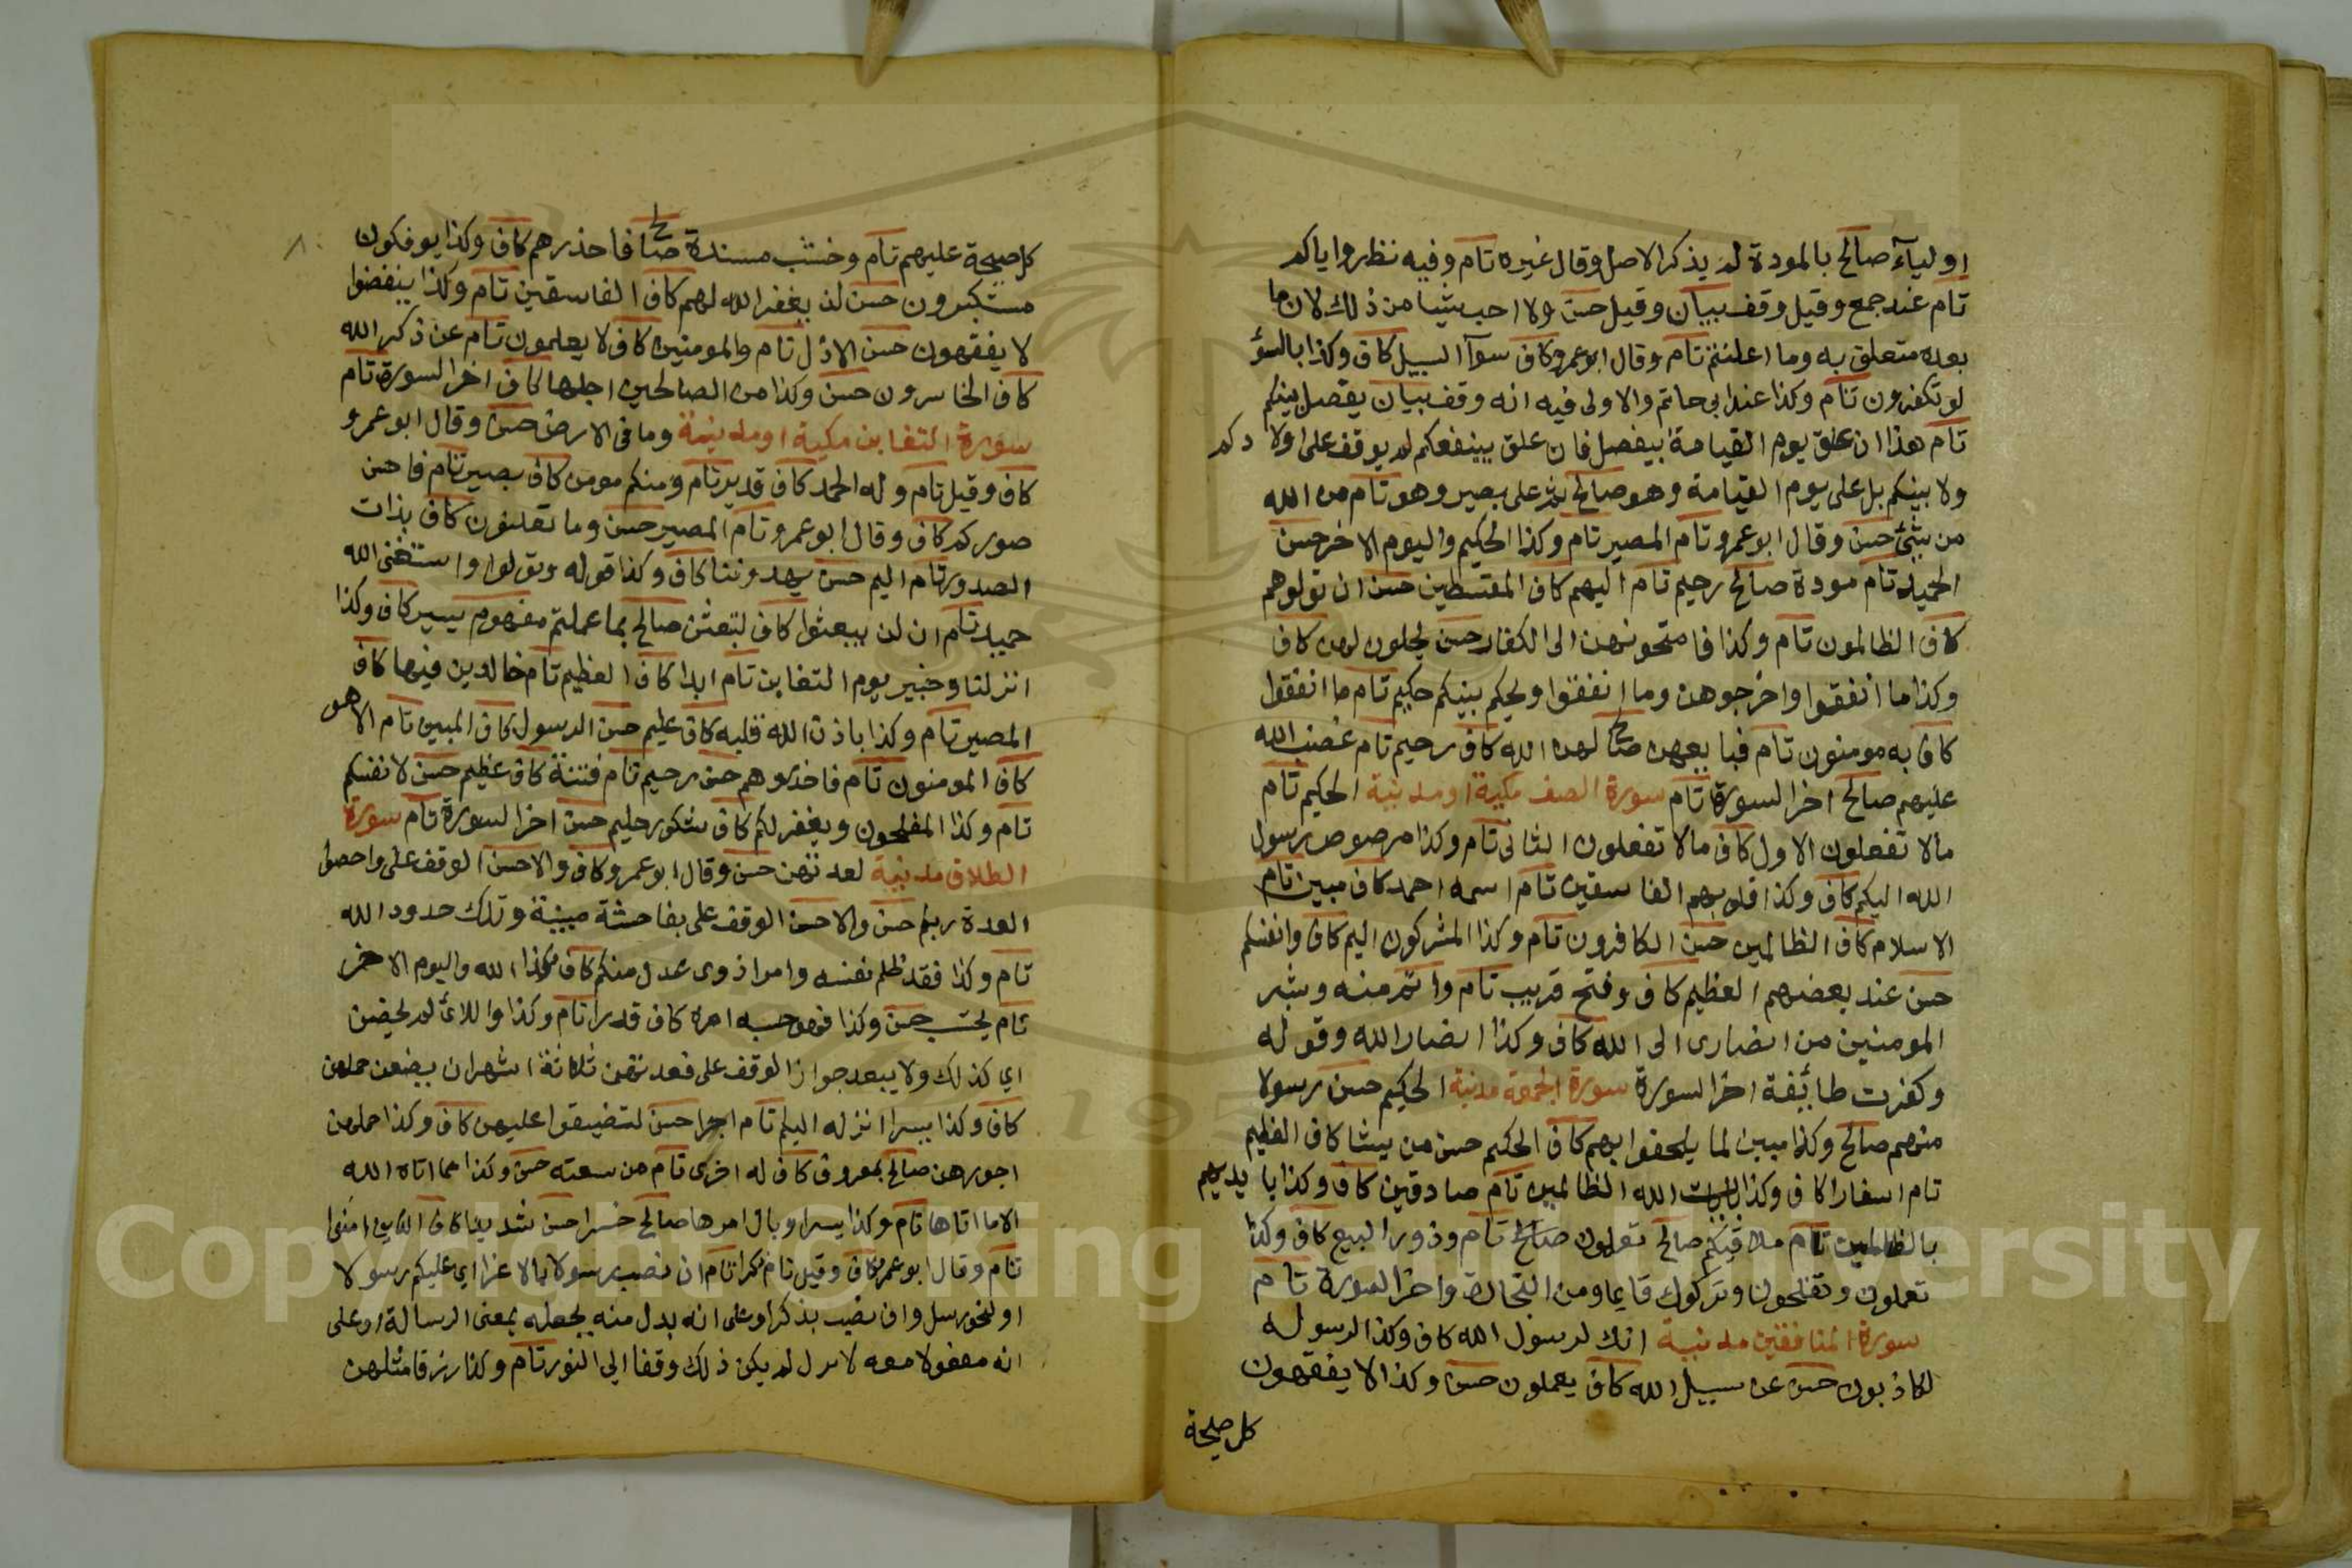 اوليآء صالح بالمودة لم يذكر الاصل وقال غيره تام وفيه نظر واياكم
تام عند جمع وقيل وقف بيان وقيل حسن ولا احب شيا من ذلك لان ما
بعده متعلق به وما اعلنتم تام وقال ابو عمرو كاف سوآ السبيل كاف وكذا بالسؤ
لو تكفرون تام وكذا عند ابي حاتم والاولى فيه انه وقف بيان يفصل بينكم
تام هذا ان علق يوم القيامة بيفصل فان علق بينفعكم لم يوقف على اولادكم
ولا بينكم بل على يوم القيامة وهو صالح ثم على بصير وهو تام من الله
من شئ حسن وقال ابو عمرو تام المصير تام وكذا الحكيم واليوم الاخر حسن
الحميد تام مودة صالح رحيم تام اليهم كاف المقسطين حسن ان تولوهم
كاف الظالمون تام وكذا فامتحنوهن الى الكفار حسن يحلون لهن كاف
وكذا ما انفقوا واخرجوهن وما انفقوا ويحكم بينكم حكيم تام ما انفقوا
كاف به مومنون تام فبايعهن صالح لهن الله كاف رحيم تام غضب الله
عليهم صالح اخر السورة تام سورة الصف مكية او مدنية الحكيم تام
مالا تفعلون الاول كاف مالا تفعلون الثاني تام وكذا مرصوص رسول
الله اليكم كاف وكذا قلوبهم الفاسقين تام اسمه احمد كاف مبين تام
الاسلام كاف الظالمين حسن الكافرون تام وكذا المشركون اليم كاف وانفسكم
حسن عند بعضهم العظيم كاف وفتح قريب تام واتم منه وبشر
المومنين من انصارى الى الله كاف وكذا انصار الله وقوله
وكفرت طائفة اخر السورة سورة الجمعة مدنية الحكيم حسن رسولا
منهم صالح وكذا مبين لما يلحقوا بهم كاف الحكيم حسن من يشا كاف العظيم
تام اسفارا كاف وكذا بايات الله الظالمين تام صادقين كاف وكذا بايديهم
بالظالمين تام ملاقيكم صالح تعملون صالح تام وذروا البيع كاف وكذا
تعملون وتفلحون وتركوك قايما ومن التجارة واخر السورة تام
سورة المنافقين مدنية انك لرسول الله كاف وكذا لرسوله
لكاذبون حسن عن سبيل الله كاف يعملون حسن وكذا لا يفقهون
كل صيحة
كل صيحة عليهم تام وخشب مسندة صالح فاحذرهم كاف وكذا يوفكون
مستكبرون حسن لن يغفر الله لهم كاف الفاسقين تام وكذا ينفضوا
لا يفقهون حسن الاذل تام والمومنين كاف لا يعلمون تام عن ذكر الله
كاف الخاسرون حسن وكذا من الصالحين اجلها كاف اخر السورة تام
سورة التغابن مكية او مدنية وما في الارض حسن وقال ابو عمرو
كاف وقيل تام وله الحمد كاف قدير تام ومنكم مومن كاف بصير تام فاحسن
صوركم كاف وقال ابو عمرو تام المصير حسن وما تعلنون كاف بذات
الصدور تام اليم حسن يهدوننا كاف وكذا قوله وتولوا واستغنى الله
حميد تام ان لن يبعثوا كاف لتبعثن صالح بما عملتم مفهوم يسير كاف وكذا
انزلنا وخبير يوم التغابن تام ابدا كاف العظيم تام خالدين فيها كاف
المصير تام وكذا باذن الله قلبه كاف عليم حسن الرسول كاف المبين تام الا هو
كاف المومنون تام فاحذروهم حسن رحيم تام فتنة كاف عظيم حسن لانفسكم
تام وكذا المفلحون ويغفر لكم كاف شكور حليم حسن اخر السورة تام سورة
الطلاق مدنية لعدتهن حسن وقال ابو عمرو كاف والاحسن الوقف على واحصوا
العدة ربكم حسن والاحسن الوقف على بفاحشة مبينة وتلك حدود الله
تام وكذا فقد ظلم نفسه وامرا ذوى عدل منكم كاف وكذا الله واليوم الاخر
تام يحتسب حسن وكذا فهو حسبه امره كاف قدرا تام وكذا واللائ لم يحضن
اي كذلك ولا يبعد جواز الوقف على فعدتهن ثلاثة اشهر ان يضعن حملهن
كاف وكذا يسرا انزله اليكم تام اجرا حسن لتضيقوا عليهن كاف وكذا حملهن
اجورهن صالح بمعروف كاف له اخرى تام من سعته حسن وكذا مما اتاه الله
الا ما اتاها تام وكذا يسرا وبال امرها صالح خسرا حسن شديدا كاف الذين امنوا
تام وقال ابو عمرو كاف وقيل تام ذكرا تام ان نصب رسولا بالاغرا اي عليكم رسولا
او لنحو رسل وان نصب بذكرا وعلى انه بدل منه بجعله بمعنى الرسالة او على
انه مفعولا معه لا بدل لم يكن ذلك وقفا الى النور تام وكذا رزقا مثلهن